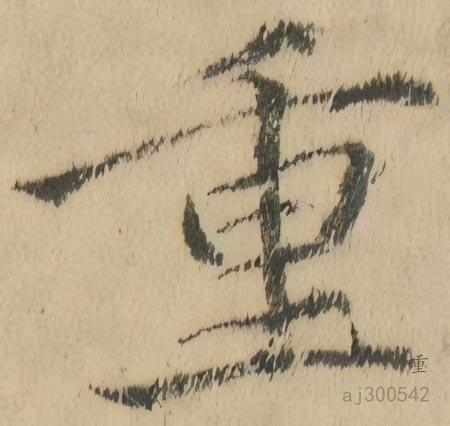 重
重
aj300542